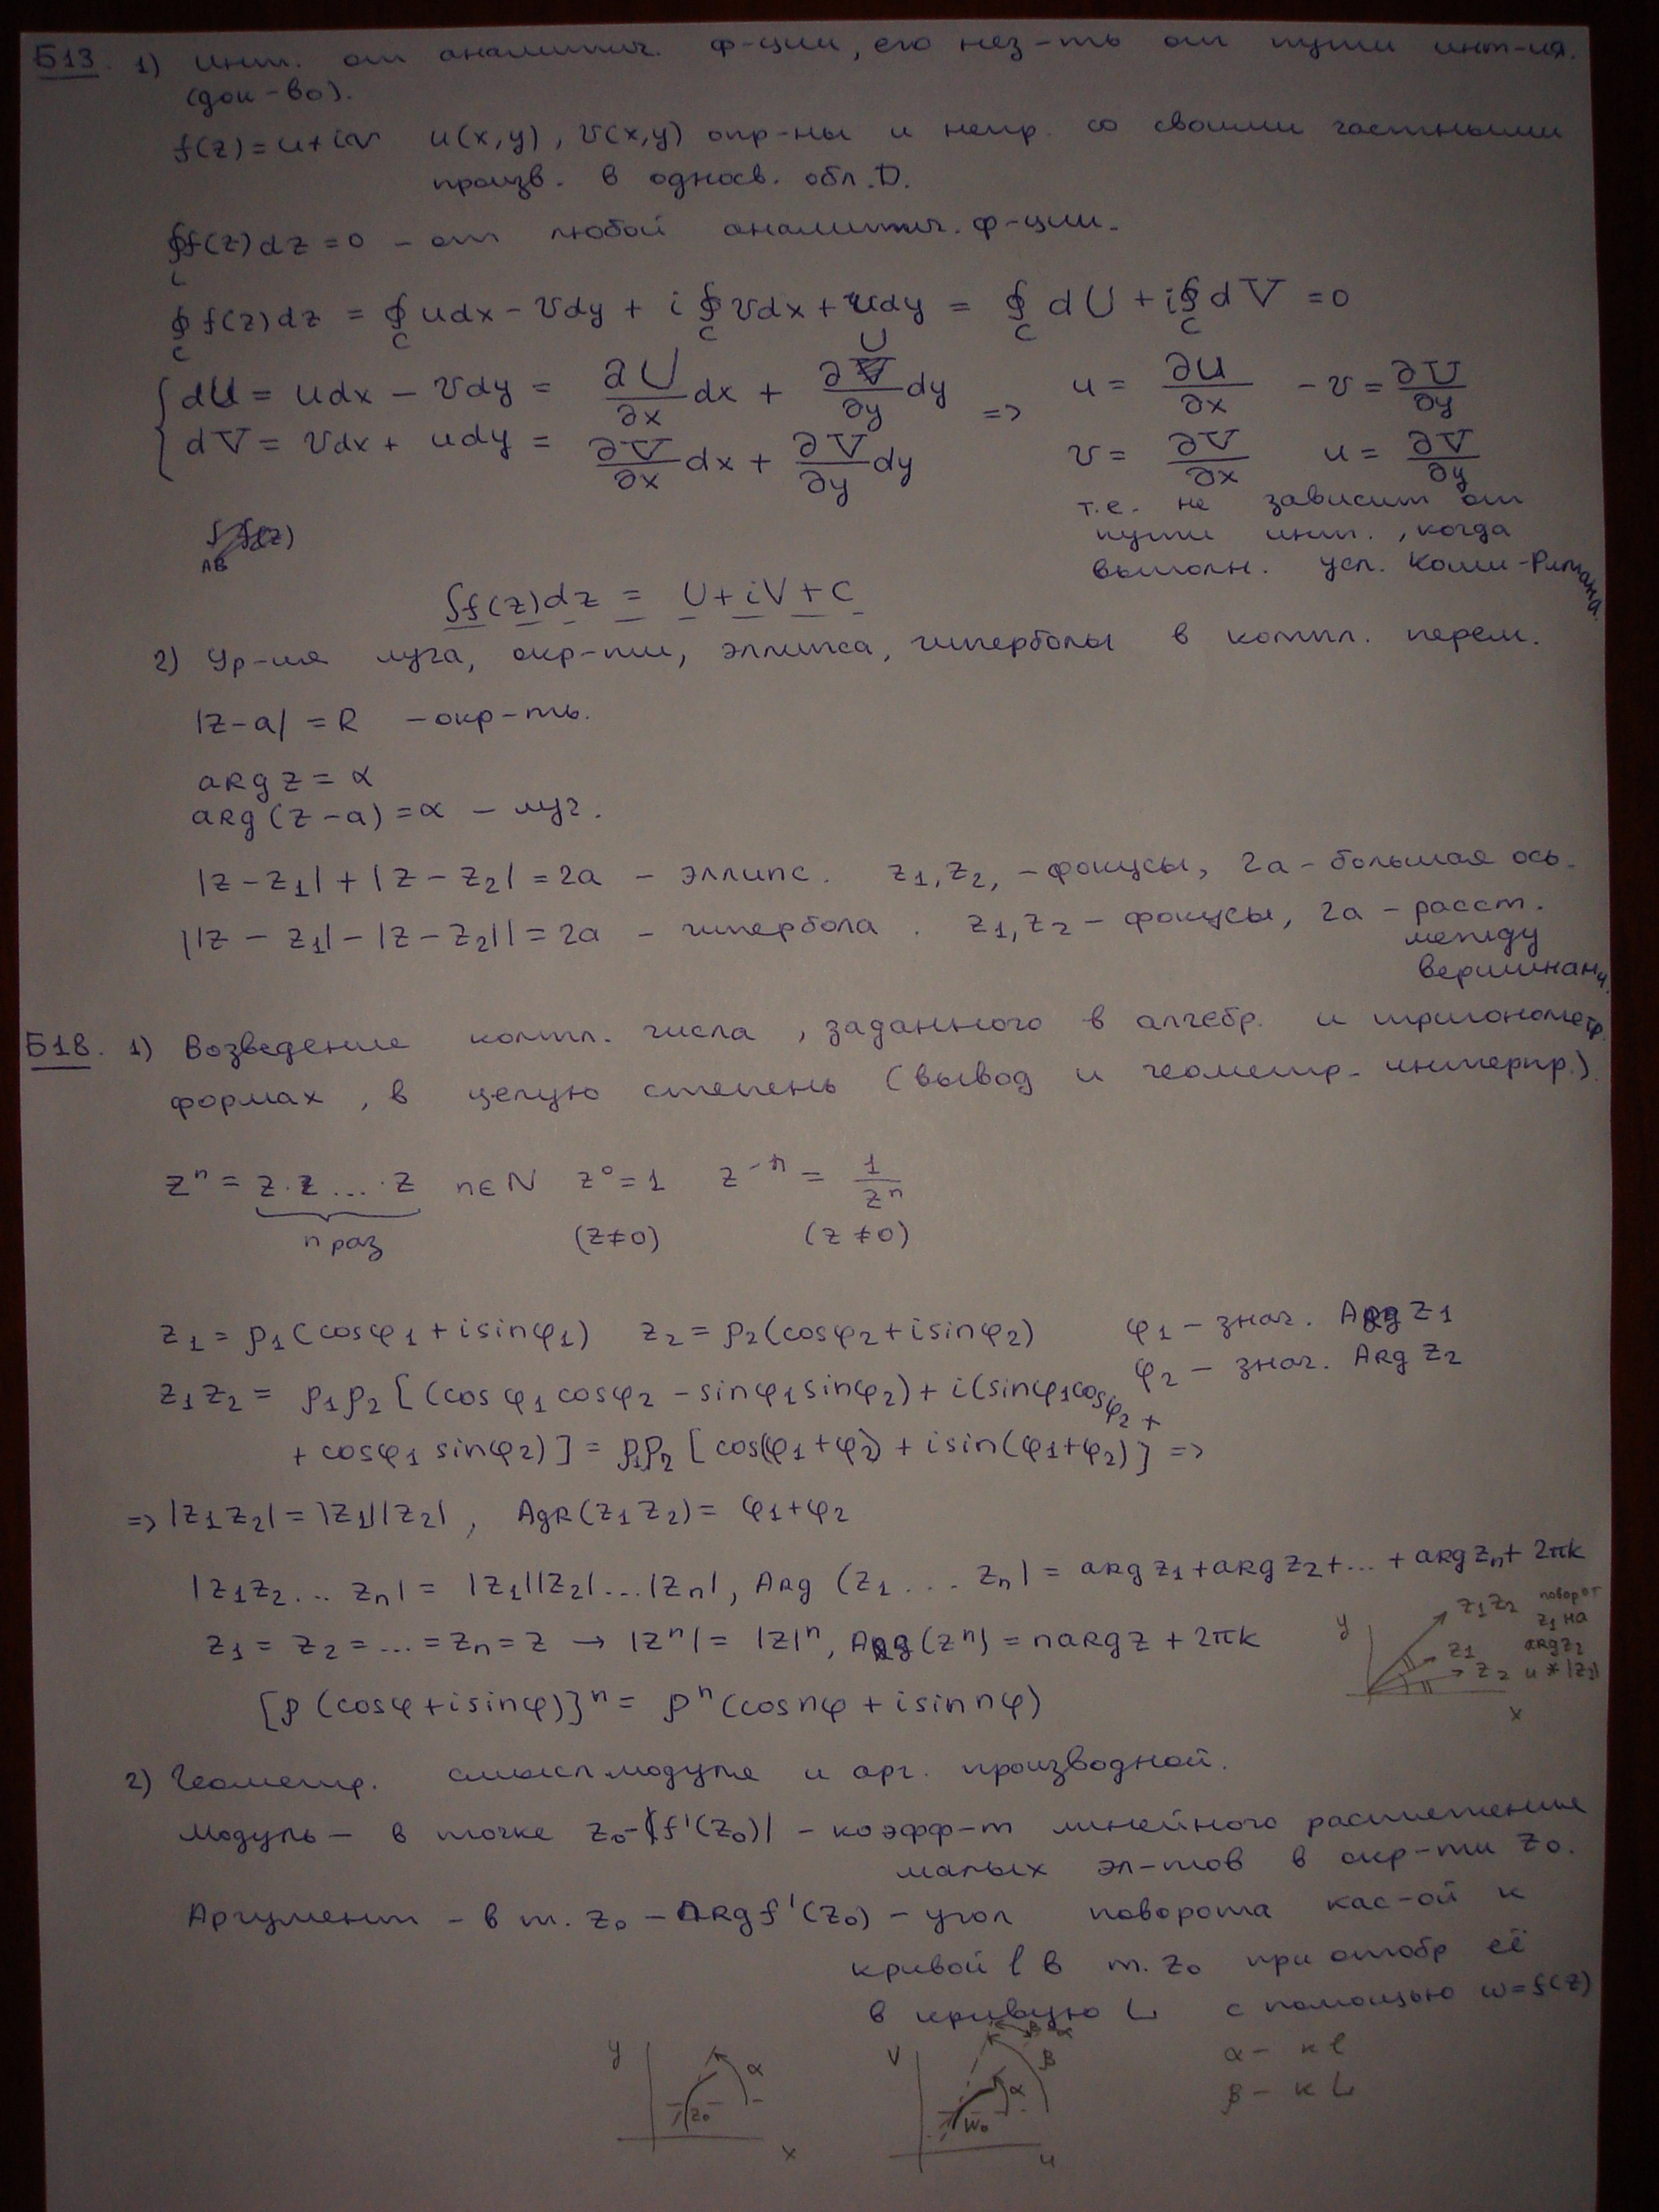 Б13. 1) Инт. от аналитич. ф-ции, его нез-ть от пути инт-ия.
(док-во).
f(z)=u+iv u(x,y), v(x,y) опр-ны и непр. со своими частными
произв. в односв. обл. D.
∮f(z)dz=0 – от любой аналитич. ф-ции.
C
∮f(z)dz = ∮udx-vdy + i∮vdx+udy = ∮dU + i∮dV = 0
C C C C C
{dU = udx - vdy = ∂U/∂x dx + ∂U/∂y dy => u = ∂U/∂x -v = ∂U/∂y
dV = vdx + udy = ∂V/∂x dx + ∂V/∂y dy v = ∂V/∂x u = ∂V/∂y
т.е. не зависит от
пути инт., когда
выполн. усл. Коши-Римана.
∫f(z)
AB
∫f(z)dz = U+iV+C
2) Ур-ия луча, окр-ти, эллипса, гиперболы в компл. перем.
|z-a| = R – окр-ть.
arg z = α
arg(z-a) = α – луч.
|z-z1|+|z-z2| = 2a – эллипс. z1, z2, – фокусы, 2a – большая ось.
||z-z1|-|z-z2|| = 2a – гипербола. z1, z2 – фокусы, 2a – расст.
между
вершинами.
Б18. 1) Возведение компл. числа, заданного в алгебр. и тригонометр.
формах, в целую степень (вывод и геометр. интерпр.).
zⁿ = z·z ... ·z n∈N z⁰=1 z⁻ⁿ = 1/zⁿ
n раз (z≠0) (z≠0)
z1 = ρ1(cosφ1+isinφ1) z2 = ρ2(cosφ2+isinφ2) φ1 – знач. Arg z1
φ2 – знач. Arg z2
z1z2 = ρ1ρ2[(cosφ1cosφ2 - sinφ1sinφ2) + i(sinφ1cosφ2 +
+ cosφ1sinφ2)] = ρ1ρ2[cos(φ1+φ2) + isin(φ1+φ2)] =>
=> |z1z2| = |z1||z2|, AgR(z1z2) = φ1+φ2
|z1z2 ... zn| = |z1||z2|...|zn|, Arg (z1 ... zn) = arg z1 + arg z2 + ... + arg zn + 2πk
z1 = z2 = ... = zn = z → |zⁿ| = |z|ⁿ, Arg(zⁿ) = n arg z + 2πk
[ρ(cosφ+isinφ)]ⁿ = ρⁿ(cosnφ + isinnφ)
y z1z2 поворот
z1 на
z1 arg z2
z2 и *|z2|
x
2) Геометр. смысл модуля и арг. производной.
Модуль – в точке z0 – |f'(z0)| – коэфф-т линейного растяжения
малых эл-тов в окр-ти z0.
Аргумент – в т. z0 – Arg f'(z0) – угол поворота кас-ой к
кривой l в т. z0 при отобр её
в кривую L с помощью w=f(z)
y α z0 x
v β-α β α w0 u
α – к l
β – к L